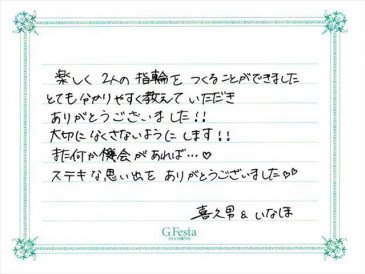 楽しく 2人の 指輪を つくることができました
とても分かりやすく教えて いただき
ありがとうございました!!
大切になくさないように します!!
また何か機会があれば…♡
ステキな思い出を ありがとうございました♡♡
喜久男 & いなほ
G.Festa
DIAMOND